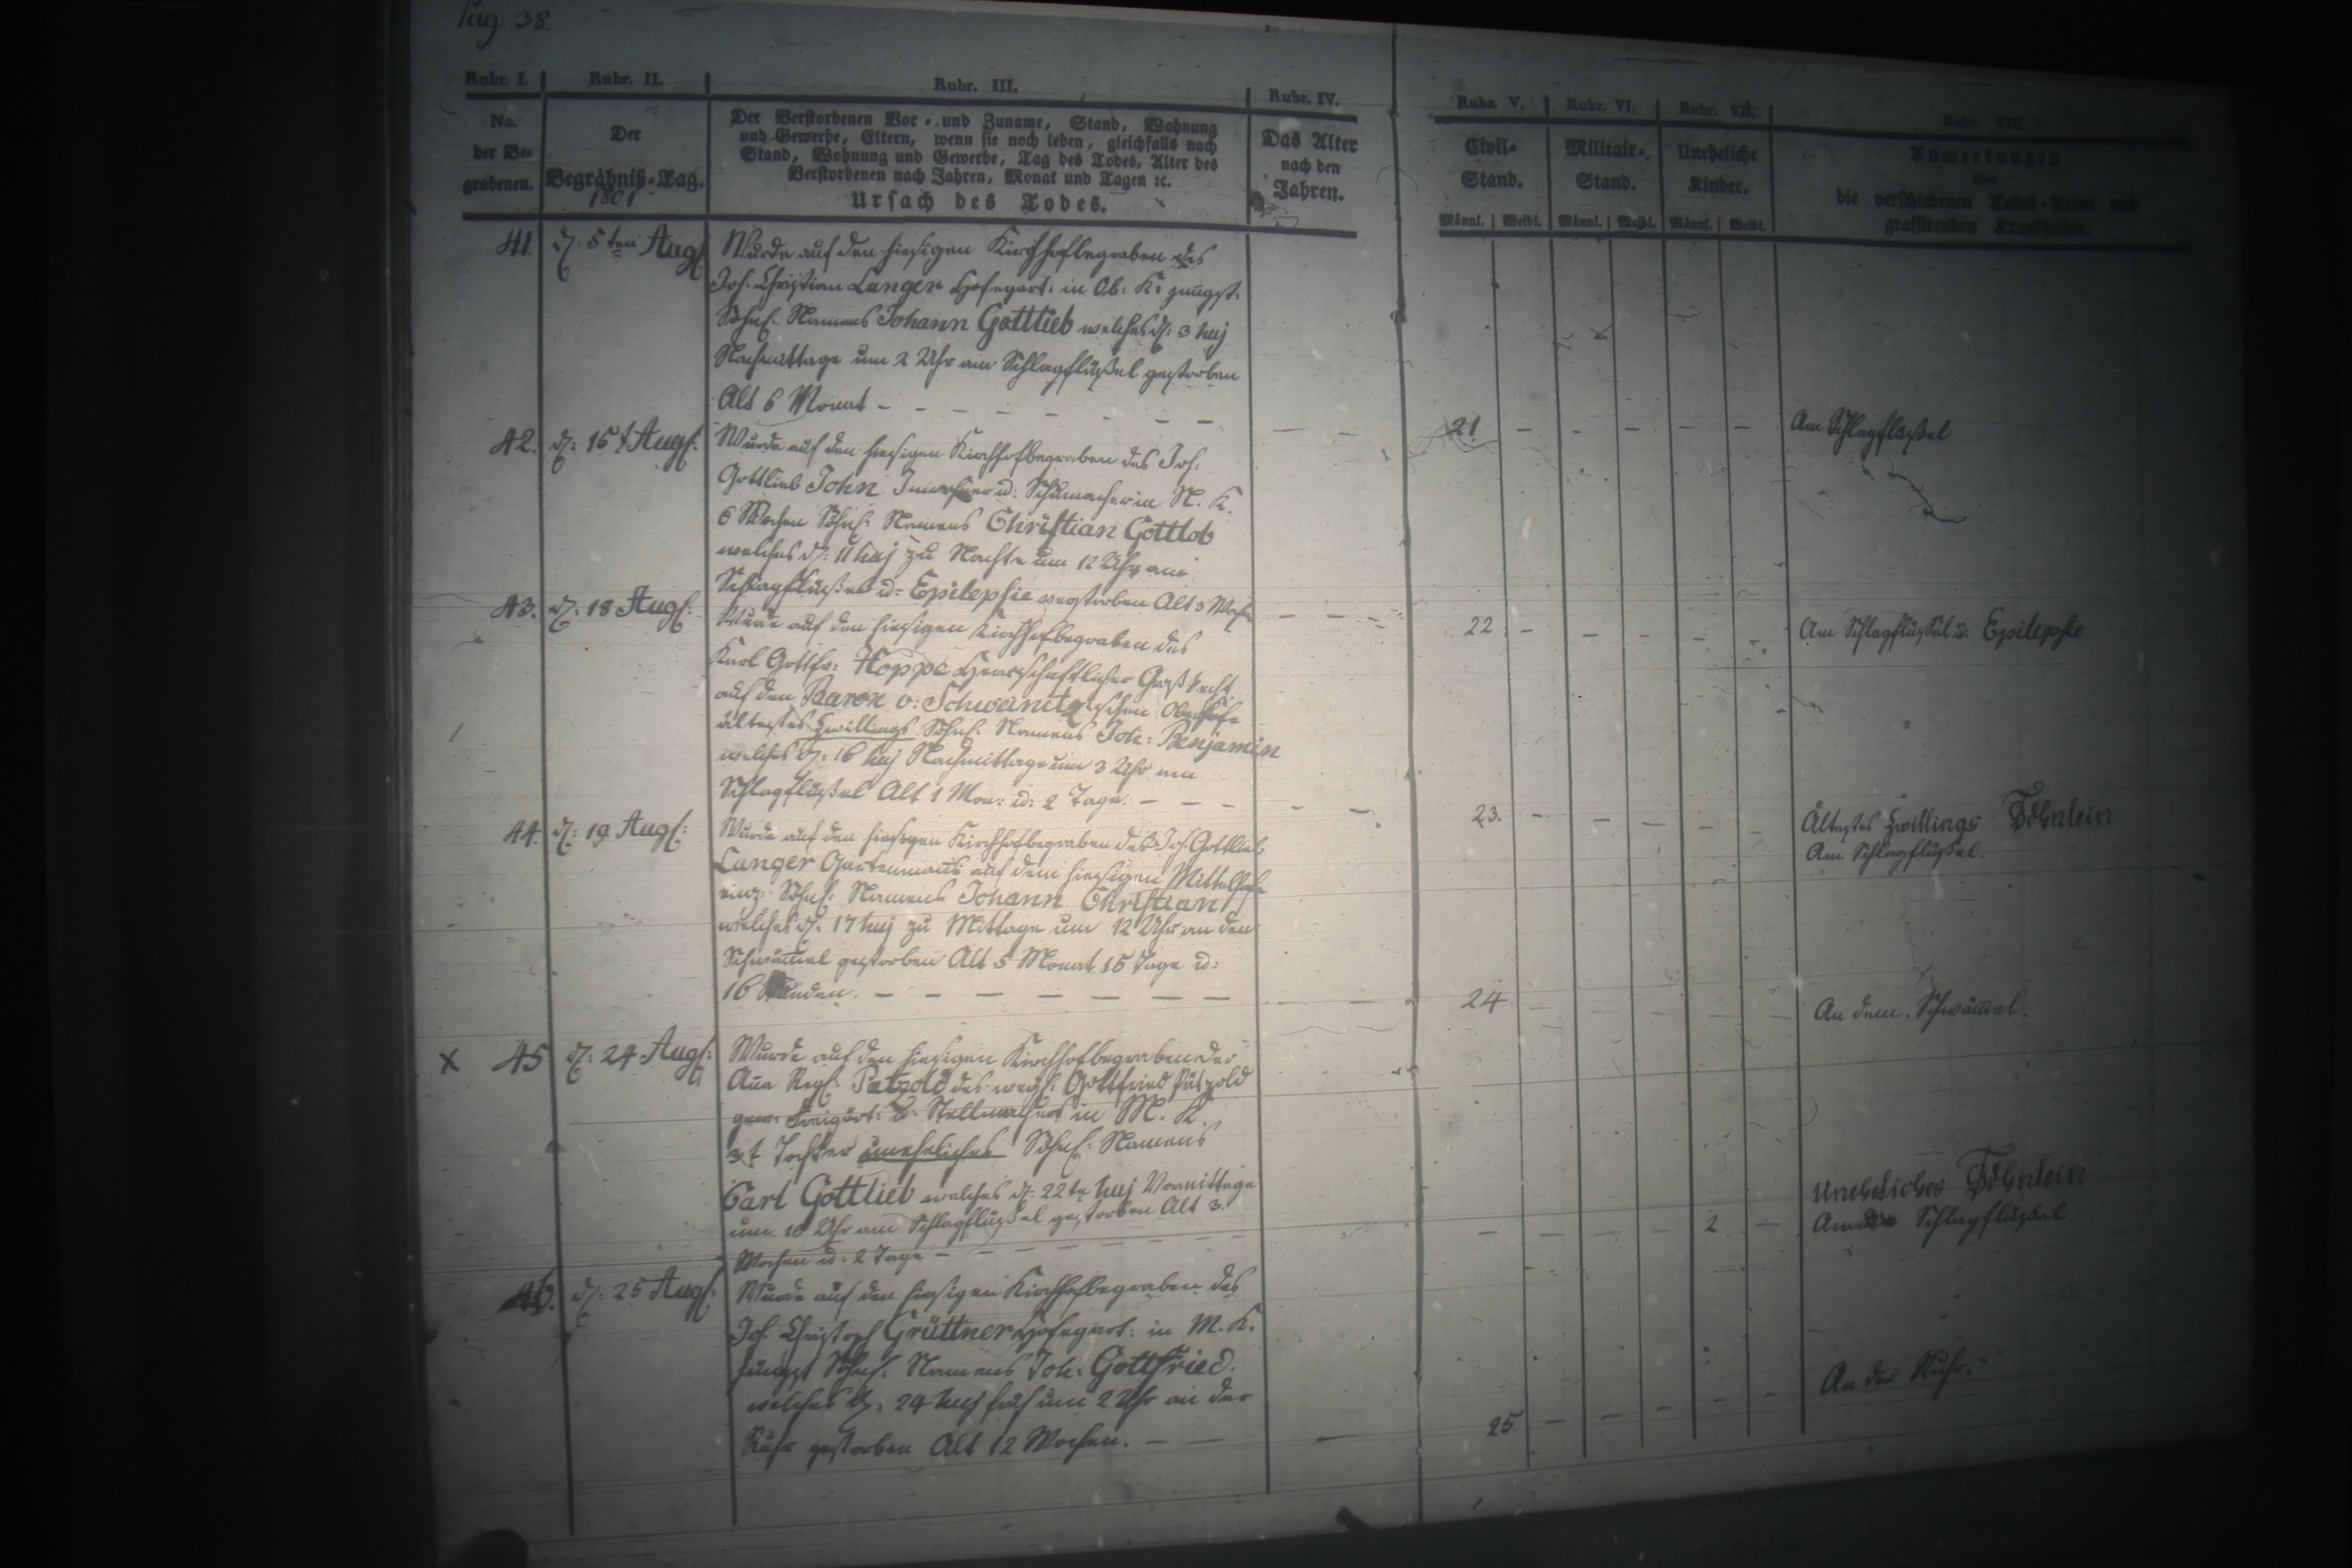 Pag 38.
Rubr. I.
Rubr. II.
Rubr. III.
Rubr. IV.
Rubr. V.
Rubr. VI.
Rubr. VII.
Rubr. VIII.
No.
der Be=
grabenen.
Der
Begräbniß=Tag.
1801
Der Verstorbenen Vor= und Zuname, Stand, Wohnung
und Gewerbe, Eltern, wenn sie noch leben, gleichfalls nach
Stand, Wohnung und Gewerbe, Tag des Todes, Alter des
Verstorbenen nach Jahren, Monat und Tagen ꝛc.
Ursach des Todes.
Das Alter
nach den
Jahren.
Civil=
Stand.
Männl. | Weibl.
Militair=
Stand.
Männl. | Weibl.
Uneheliche
Kinder.
Männl. | Weibl.
Anmerkungen
über
die verschiedenen Todes=Arten und
grassirenden Krankheiten.
41. d: 5ten Aug:
Wurde auf den hiesigen Kirchhof begraben des
Joh. Christian Langer Hofegärt: in Ob: K: jüngst.
Söhnl. Namens Johann Gottlieb welches d: 3 huj
Nachmittage um 2 Uhr am Schlagflüßel gestorben
Alt 6 Monat – – – – – – – –
21 – – – – –
Am Schlagflüßel
42. d: 15t Aug:
Wurde auf den hiesigen Kirchhof begraben des Joh.
Gottlieb John Innwohner u: Schumacher in N. K.
6 Wochen Söhnl. Namens Christian Gottlob
welches d: 11 huj zu Nachts um 12 Uhr am
Schlagflüßel u: Epilepsie gestorben Alt 3 Woch
22. – – – – –
Am Schlagflüßel u: Epilepsie
43. d: 18 Aug:
Wurde auf den hiesigen Kirchhof begraben des
Karl Gottfr: Hoppe Herrschaftlicher
auf den Baron v: Schweinitzschen Oberhofe
ältestes Zwillings Söhnl. Namens Joh: Benjamin
welches d: 16 huj Nachmittage um 3 Uhr am
Schlagflüßel Alt 1 Mon: u: 2 Tage. – – –
23. – – – – –
Ältestes Zwillings Söhnlein
Am Schlagflüßel.
44. d: 19 Aug:
Wurde auf den hiesigen Kirchhof begraben des Joh. Gottlieb
Langer Gartenmanns auf dem hiesigen Mittelhofe
einz: Söhnl. Namens Johann Christian
welches d: 17 huj zu Mittage um 12 Uhr an den
Schwämmel gestorben Alt 5 Monat 15 Tage u:
16 Stunden. – – – – – – –
24 – – – – –
An dem Schwämmel.
x 45 d: 24 Aug:
Wurde auf den hiesigen Kirchhof begraben der
Anna Ros: Patzold des weyl: Gottfried Pätzold
gew: Freigärt: u: Stellmachers in M. K.
3t Tochter uneheliches Söhnl. Namens
Carl Gottlieb welches d: 22te huj Vormittage
um 10 Uhr am Schlagflüßel gestorben Alt 3.
Wochen u: 2 Tage – – – – – – –
– – – – 2 –
Uneheliches Söhnlein
Am Schlagflüßel
46. d: 25 Aug:
Wurde auf den hiesigen Kirchhof begraben des
Joh. Christoph Grüttner Hofegärt: in M. K.
jüngst Söhnl. Namens Joh: Gottfried.
welches d: 24 huj früh um 2 Uhr an der
Ruhr gestorben Alt 12 Wochen. – –
25 – – – – –
An der Ruhr.